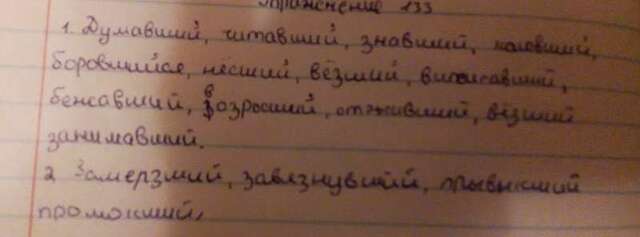 Упражнение 133
1. Думавший, читавший, знавший, коловший,
боровшийся, нёсший, вёзший, выписавший,
бежавший, возросший, отживший, вёзший
занимавший.
2 Замерзший, завязнувший, привыкший
промокший,